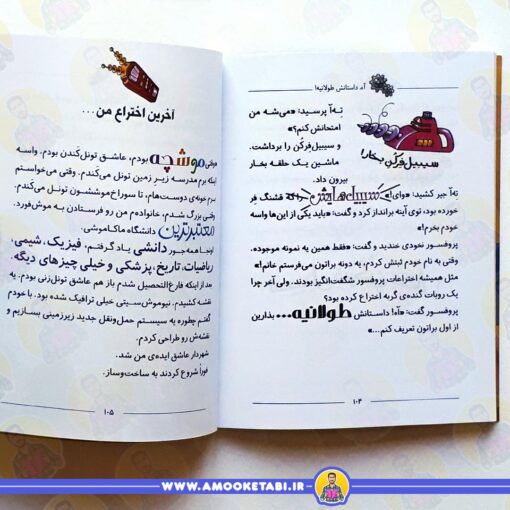 آه، داستانش طولانیه!
تِه‌آ پرسید: «می‌شه من
امتحانش کنم؟»
و سیبیل‌فِرکُن را برداشت.
ماشین یک حلقه بخار
بیرون داد.
سیبیل فِرکُنِ بخار!
تِه‌آ جیر کشید: «وای!» سیبیل‌هایش را که قشنگ فِر
خورده بود، توی آینه برانداز کرد و گفت: «باید یکی از این‌ها واسه
خودم بخرم!»
پروفسور نخودی خندید و گفت: «فقط همین یه نمونه موجوده.
وقتی به نام خودم ثبتش کردم، یه دونه براتون می‌فرستم خانم!»
مثل همیشه اختراعات پروفسور شگفت‌انگیز بودند. ولی آخر چرا
یک روبات گنده‌ی گربه اختراع کرده بود؟
پروفسور گفت: «آه! داستانش طولانیه... بذارین
از اول براتون تعریف کنم...»
۱۰۴
آخرین اختراع من...
وقتی موشچه بودم، عاشق تونل‌کَندن بودم. واسه
اینکه برم مدرسه زیر زمین تونل می‌کندم. وقتی می‌خواستم
برم خونه‌ی دوست‌هام، تا سوراخ‌موششون تونل می‌کندم.
وقتی بزرگ شدم، خانواده‌م من رو فرستادن به موش‌فورد،
معتبرترین دانشگاه ماکاموشی.
اونجا همه جور دانشی یاد گرفتم، فیزیک، شیمی،
ریاضیات، تاریخ، پزشکی و خیلی چیزهای دیگه.
بعد از اینکه فارغ‌التحصیل شدم باز هم عاشق تونل‌زنی بودم. یه
نقشه کشیدم. نیوموش‌سیتی خیلی ترافیک شده بود. با خودم
گفتم چطوره یه سیستم حمل‌ونقل جدید زیرزمینی بسازیم و
نقشه‌ش رو طراحی کردم.
شهردار عاشق ایده‌ی من شد.
فوراً شروع کردند به ساخت‌وساز.
۱۰۵
WWW.AMOOKETABI.IR